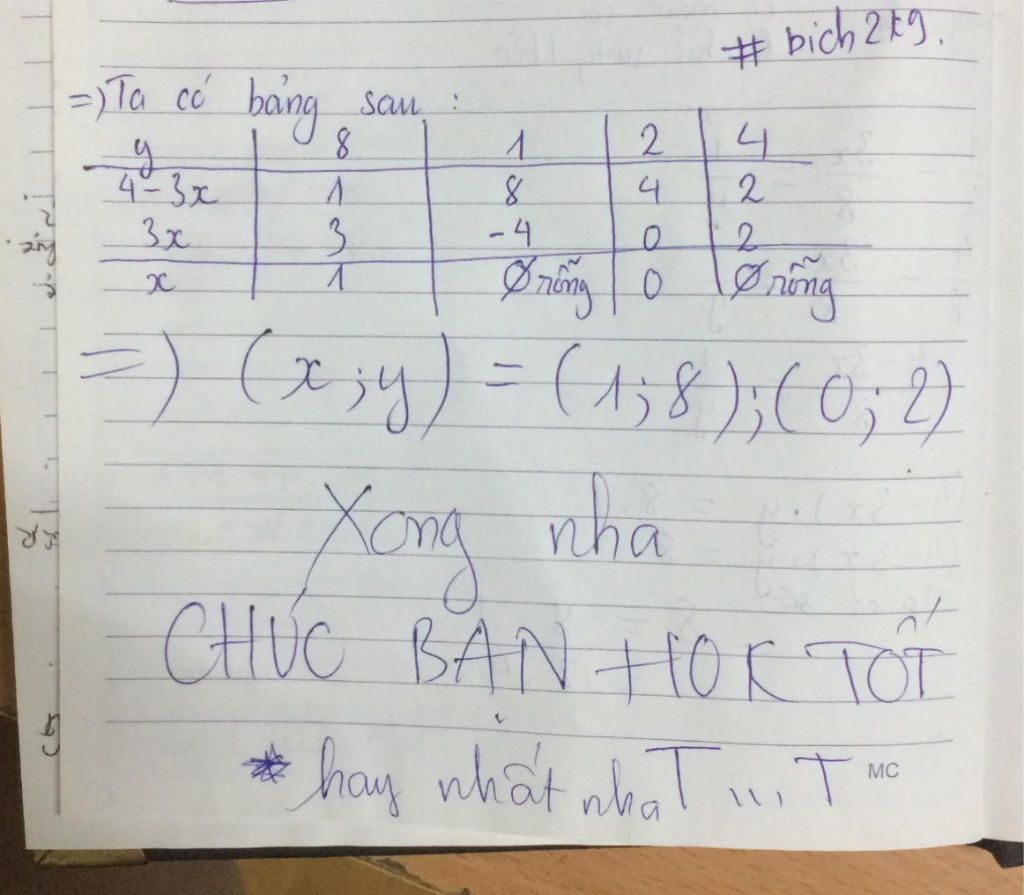 # bich2k9.
=) Ta có bảng sau :
y 8 1 2 4
4-3x 1 8 4 2
3x 3 -4 0 2
x 1 Ø rỗng 0 Ø rỗng
=) (x;y) = (1;8);(0;2)
Xong nha
CHÚC BẠN HOK TỐT
* hay nhất nha T...T
MC